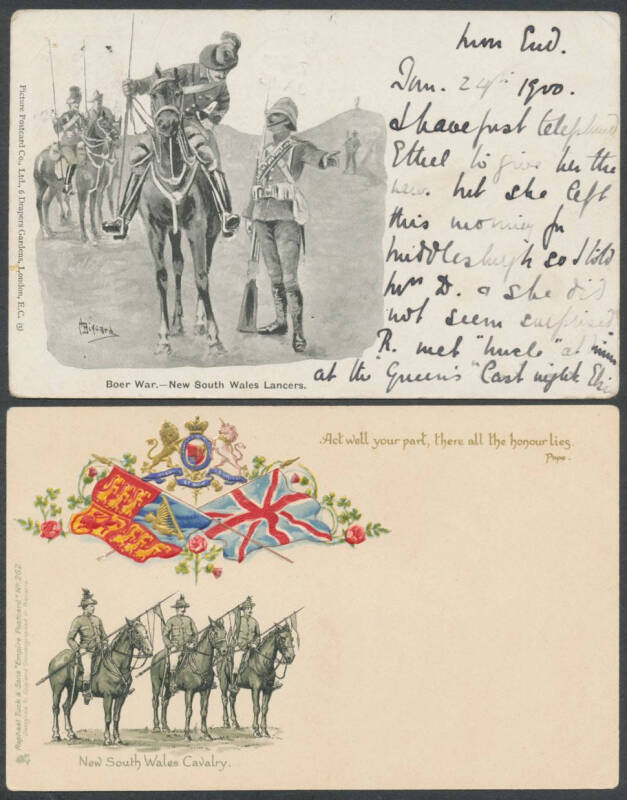 Picture Postcard Co., Ltd., 6 Drapers Gardens, London, E.C.
Boer War.—New South Wales Lancers.
Jan. 24th 1900.
I have just telephoned
Ethel to give her the
news. but she left
this morning for
Middlesbrough so I told
Mrs D. & she did
not seem surprised
R. met "Uncle" at
at the "Queen's" last night.
Act well your part, there all the honour lies.
Pope.
Raphael Tuck & Sons "Empire Postcard" No. 262.
New South Wales Cavalry.